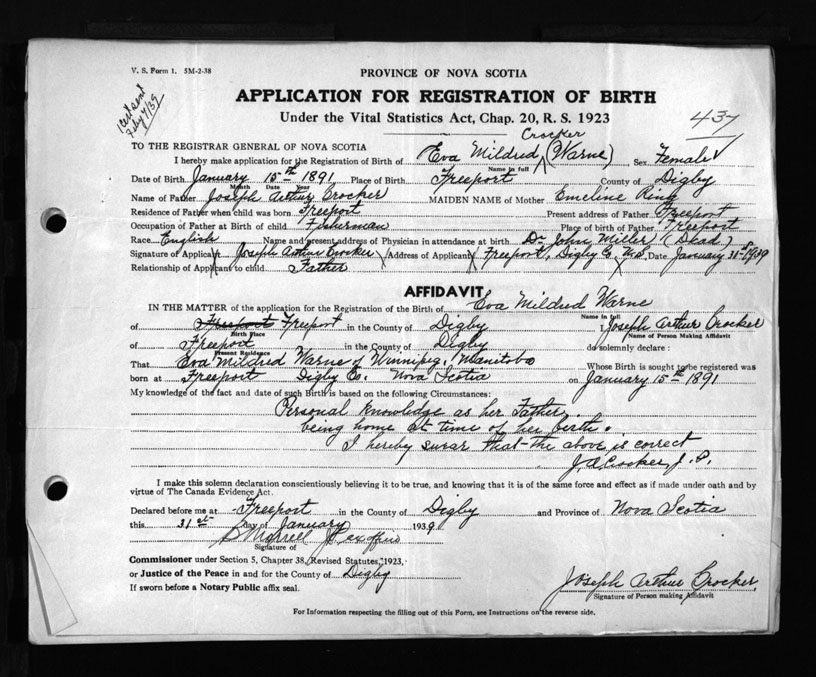 V. S. Form 1. 5M-2-38
PROVINCE OF NOVA SCOTIA
APPLICATION FOR REGISTRATION OF BIRTH
Under the Vital Statistics Act, Chap. 20, R. S. 1923
437
Crocker
TO THE REGISTRAR GENERAL OF NOVA SCOTIA
I hereby make application for the Registration of Birth of Eva Mildred (Warne) Sex Female
Name in full
Date of Birth January 15th 1891 Place of Birth Freeport County of Digby
Month Date Year
Name of Father Joseph Arthur Crocker MAIDEN NAME of Mother Emeline Ring
Residence of Father when child was born Freeport Present address of Father Freeport
Occupation of Father at Birth of child Fisherman Place of birth of Father Freeport
Race English Name and present address of Physician in attendance at birth Dr John Miller (Dead)
Signature of Applicant Joseph Arthur Crocker Address of Applicant Freeport, Digby Co. N.S. Date January 31st 1939
Relationship of Applicant to child Father
AFFIDAVIT
IN THE MATTER of the application for the Registration of the Birth of Eva Mildred Warne
Name in full
of Freeport Freeport in the County of Digby I, Joseph Arthur Crocker
Birth Place Name of Person Making Affidavit
of Freeport in the County of Digby do solemnly declare :
Present Residence
That Eva Mildred Warne of Winnipeg, Manitoba Whose Birth is sought to be registered was
born at Freeport Digby Co. Nova Scotia on January 15th 1891
My knowledge of the fact and date of such Birth is based on the following Circumstances:
Personal knowledge as her Father.
being home at time of her birth.
I hereby swear that the above is correct
J A Crocker, J. P.
I make this solemn declaration conscientiously believing it to be true, and knowing that it is of the same force and effect as if made under oath and by
virtue of The Canada Evidence Act.
Declared before me at Freeport in the County of Digby and Province of Nova Scotia
this 31st day of January 1939
B Morrell J P ex officio
Signature of
Commissioner under Section 5, Chapter 38, Revised Statutes, 1923,
or Justice of the Peace in and for the County of Digby
If sworn before a Notary Public affix seal.
Joseph Arthur Crocker
Signature of Person making Affidavit
For Information respecting the filling out of this Form, see Instructions on the reverse side.